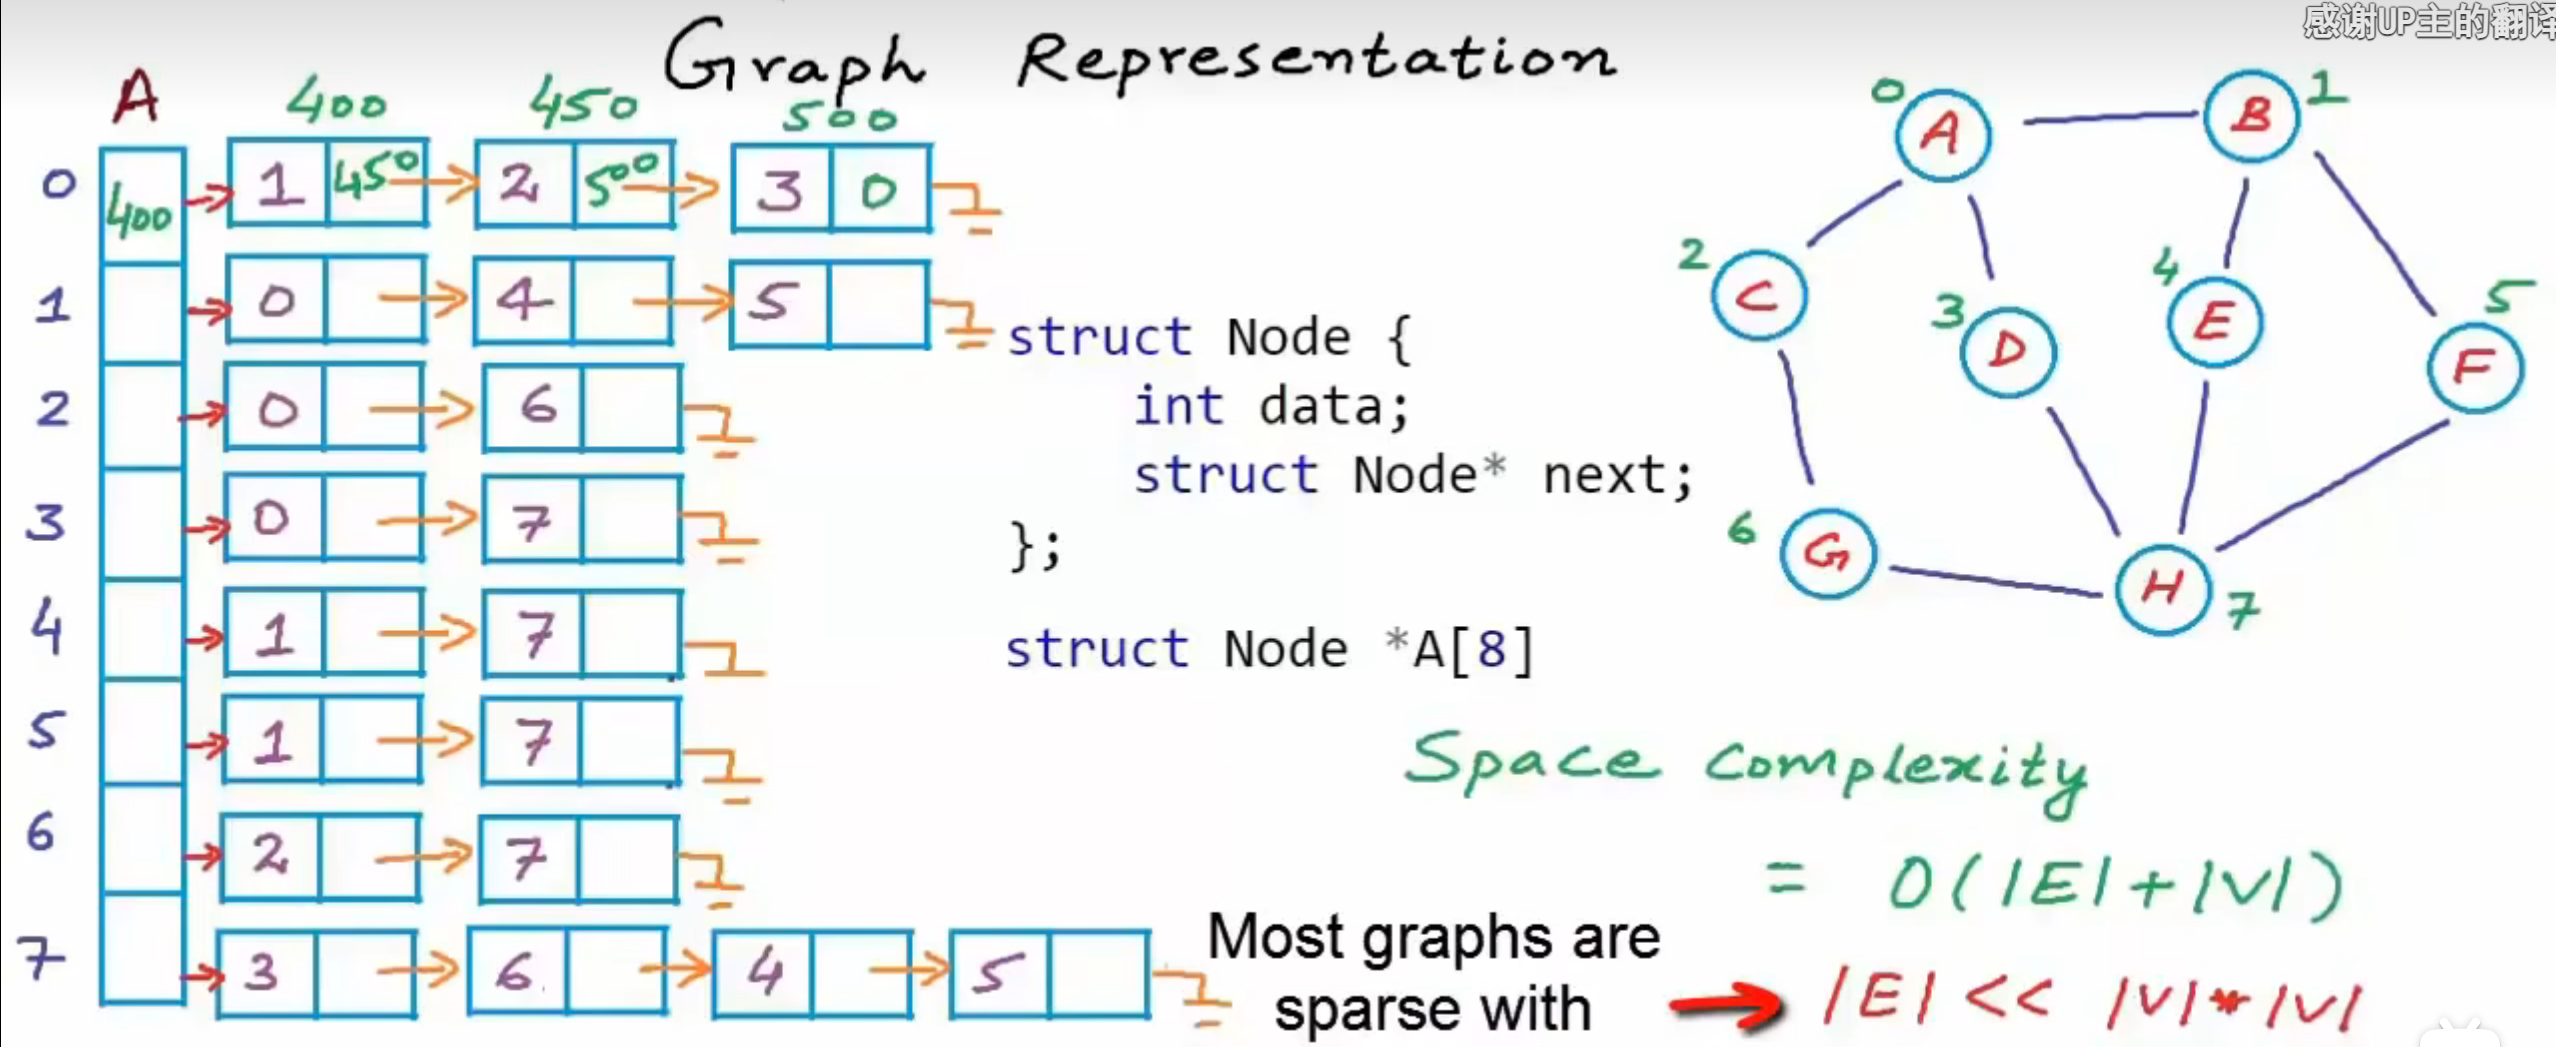 感谢UP主的翻译
Graph Representation
A
400 450 500
0 400 1 450 2 500 3 0
1 0 4 5
2 0 6
3 0 7
4 1 7
5 1 7
6 2 7
7 3 6 4 5
struct Node {
int data;
struct Node* next;
};
struct Node *A[8]
0 A
B 1
2 C
3 D
4 E
5 F
6 G
H 7
Space Complexity
= O(|E|+|V|)
Most graphs are
sparse with
|E| << |V|*|V|